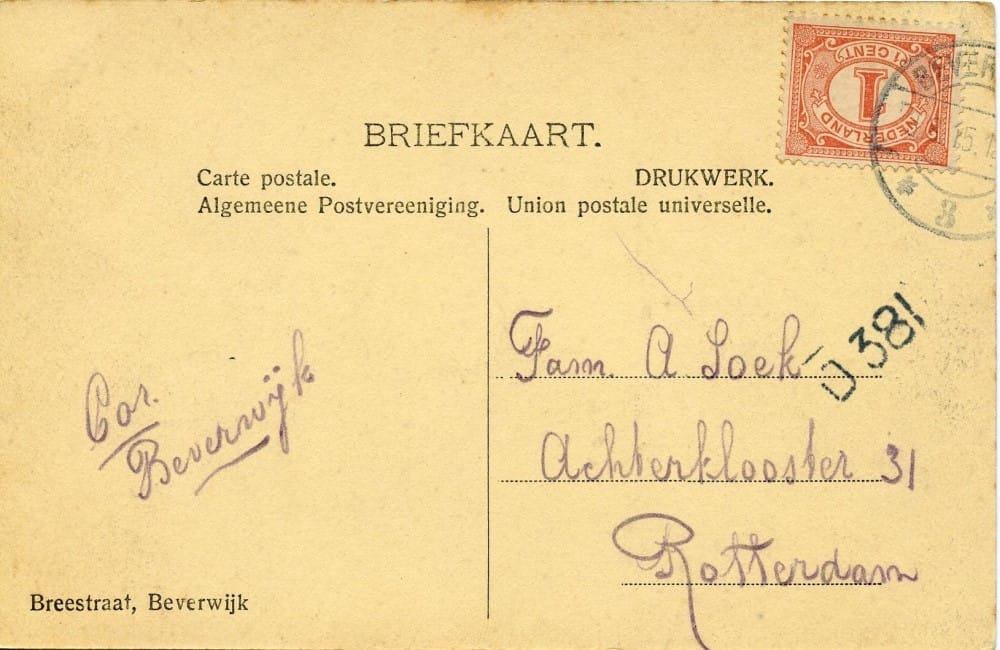 BRIEFKAART.
Carte postale.
DRUKWERK.
Algemeene Postvereeniging. Union postale universelle.
1 CENT
1
NEDERLAND
BEVER
15.12
3
D 381
Fam. A Loek
Achterklooster 31
Rotterdam
Cor.
Beverwijk
Breestraat, Beverwijk